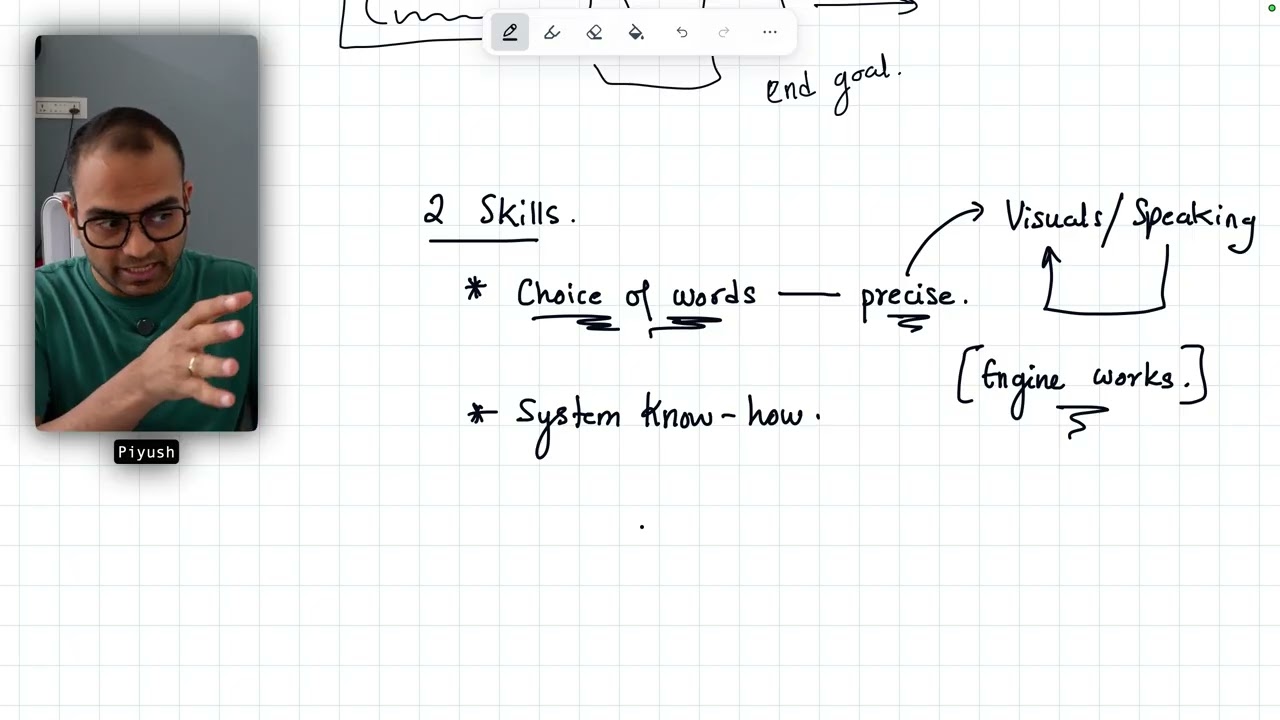 end goal.
2 Skills.
Visuals/Speaking
* Choice of words — precise.
[Engine works.]
* System Know-how.
Piyush